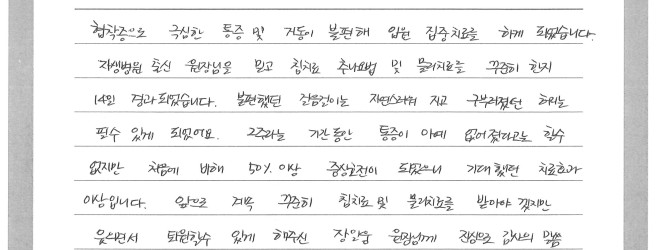 협착증으로 극심한 통증 및 거동이 불편해 입원 집중치료를 하게 되었습니다.
자생병원 출신 원장님을 믿고 침치료 추나요법 및 물리치료를 꾸준히 한지
14일 경과 되었습니다. 불편했던 걸음걸이는 자연스러워 지고 구부러졌던 허리는
펼수 있게 되었어요. 2주라는 기간동안 통증이 아예 없어졌다고는 할수
없지만 처음에 비해 50% 이상 증상호전이 되었으니 기대했던 치료효과
이상입니다. 앞으로 계속 꾸준히 침치료 및 물리치료를 받아야 겠지만
웃으면서 퇴원할수 있게 해주신 원장님께 진심으로 감사의 말씀